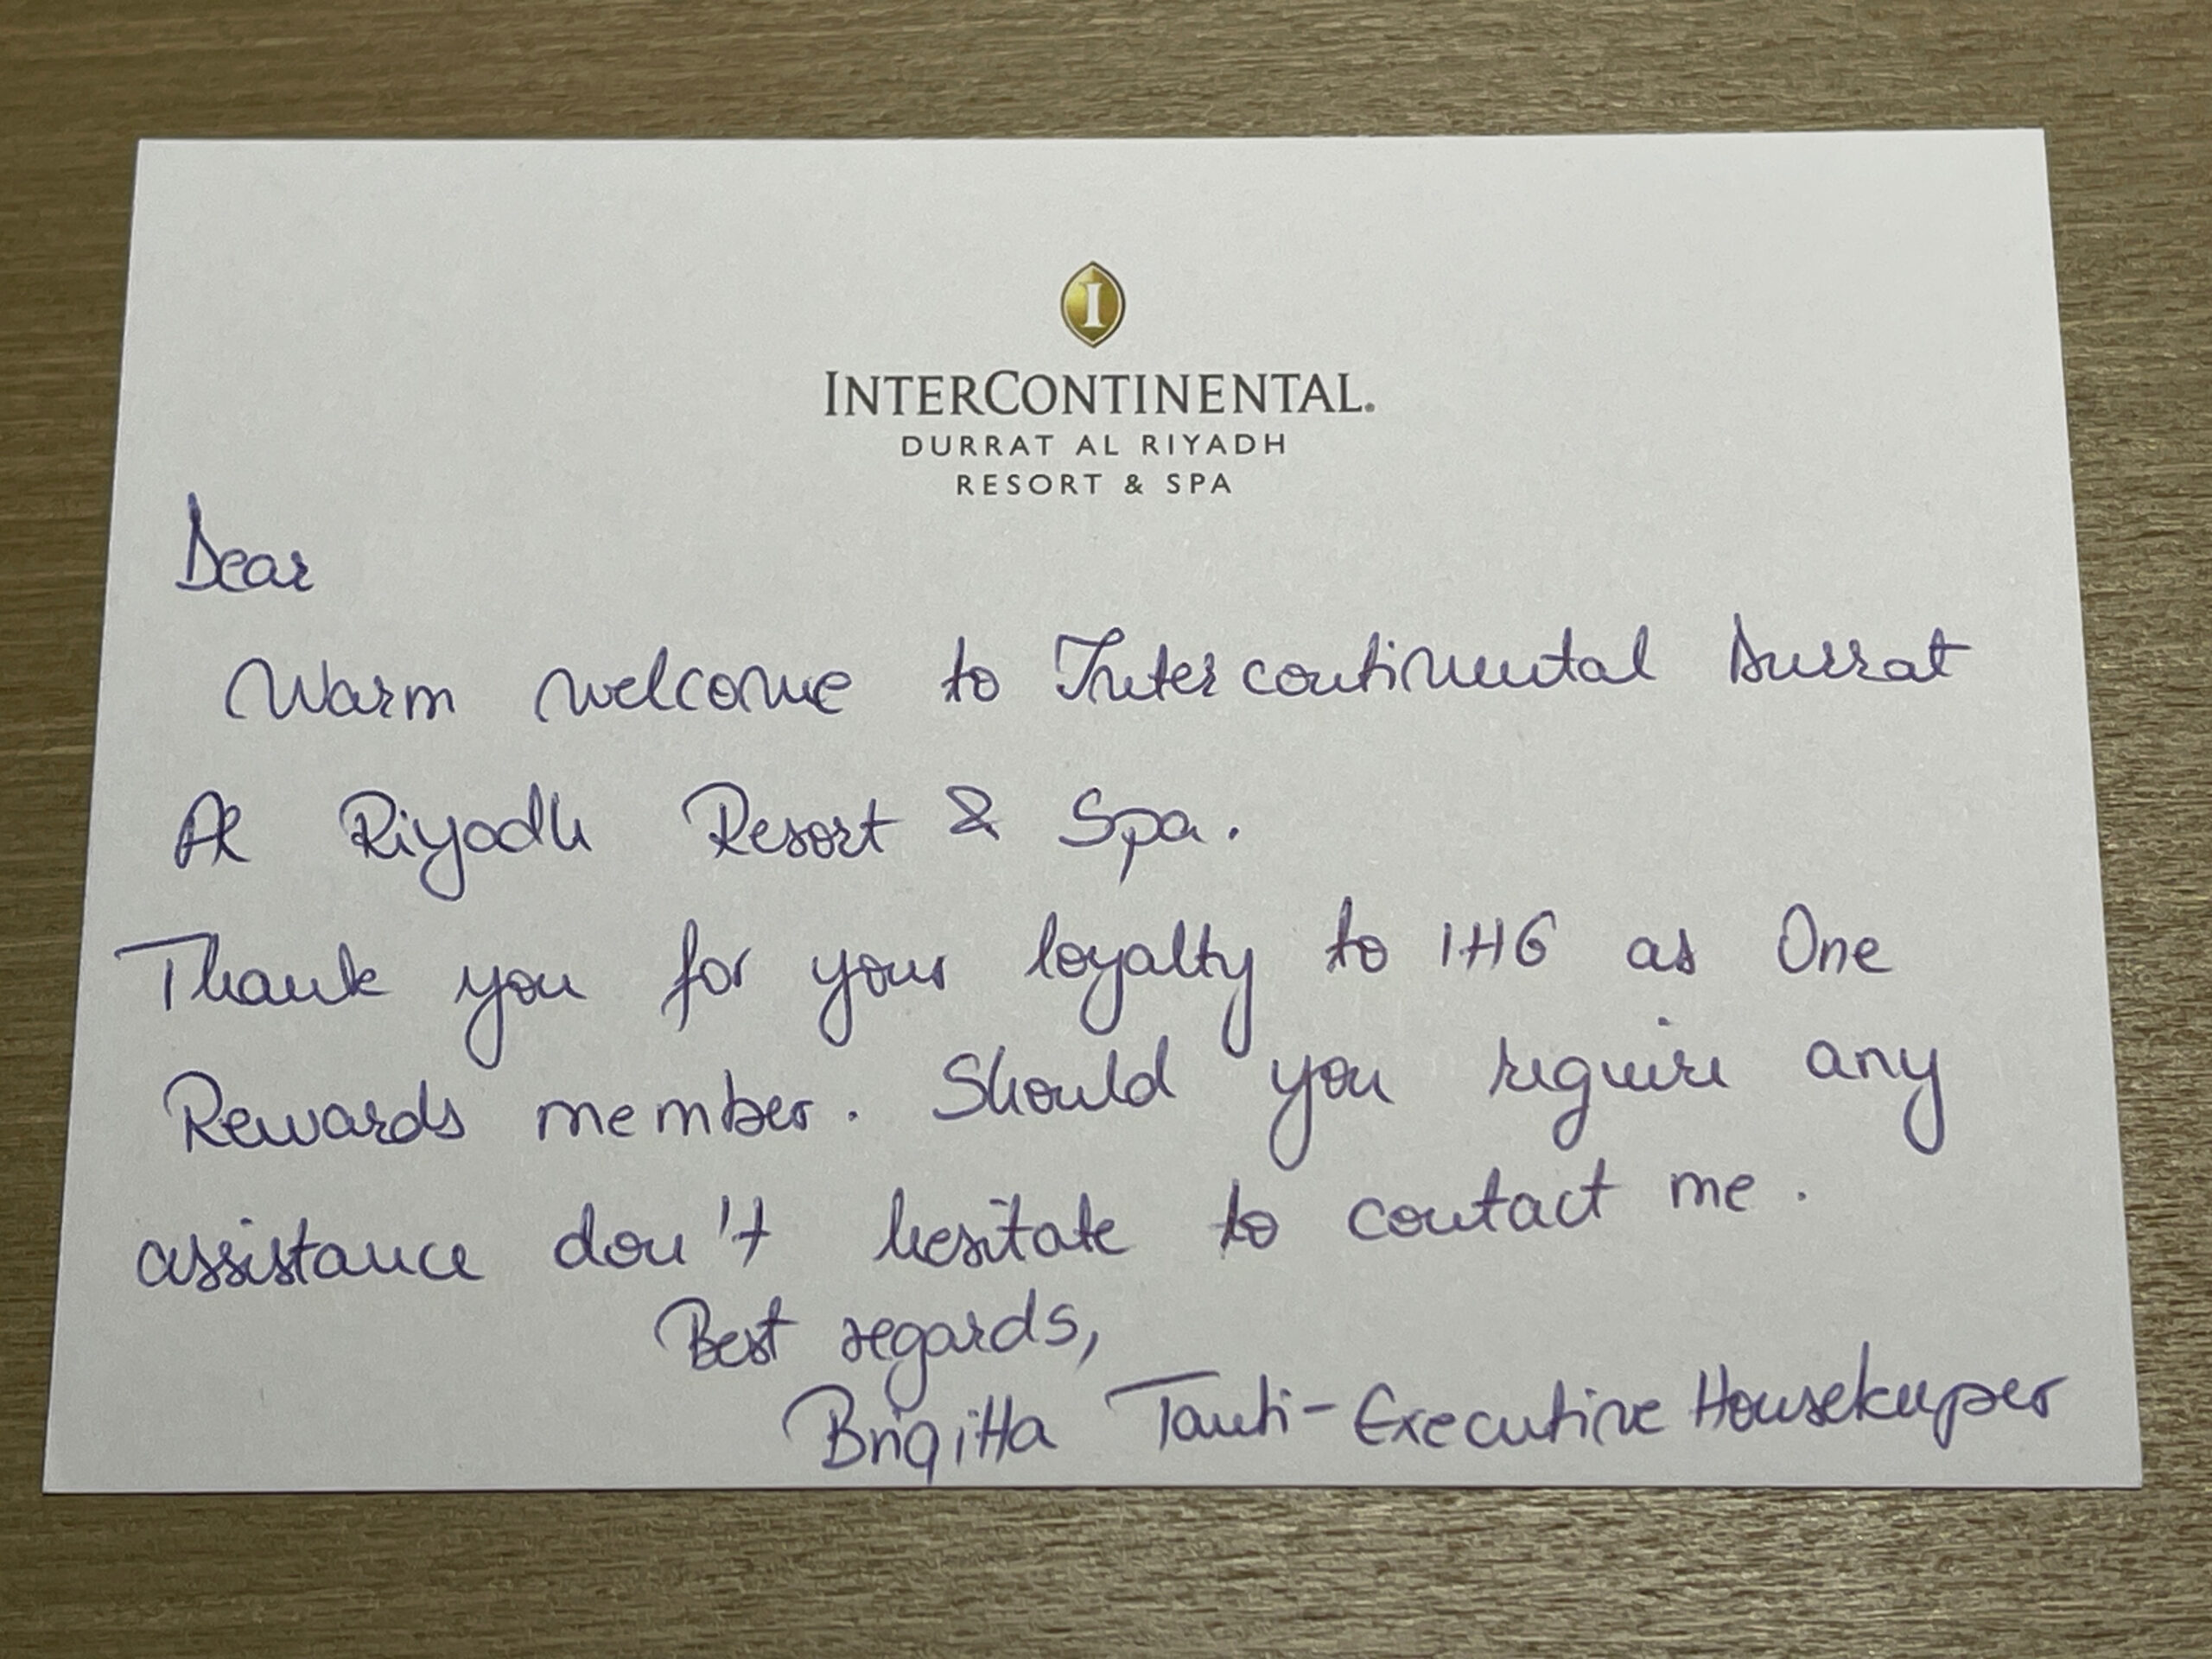 I
INTERCONTINENTAL®
DURRAT AL RIYADH
RESORT & SPA
Dear
Warm welcome to Intercontinental Durrat
Al Riyadh Resort & Spa.
Thank you for your loyalty to IHG as One
Rewards member. Should you require any
assistance don't hesitate to contact me.
Best regards,
Brigitta Tauti - Executive Housekeeper